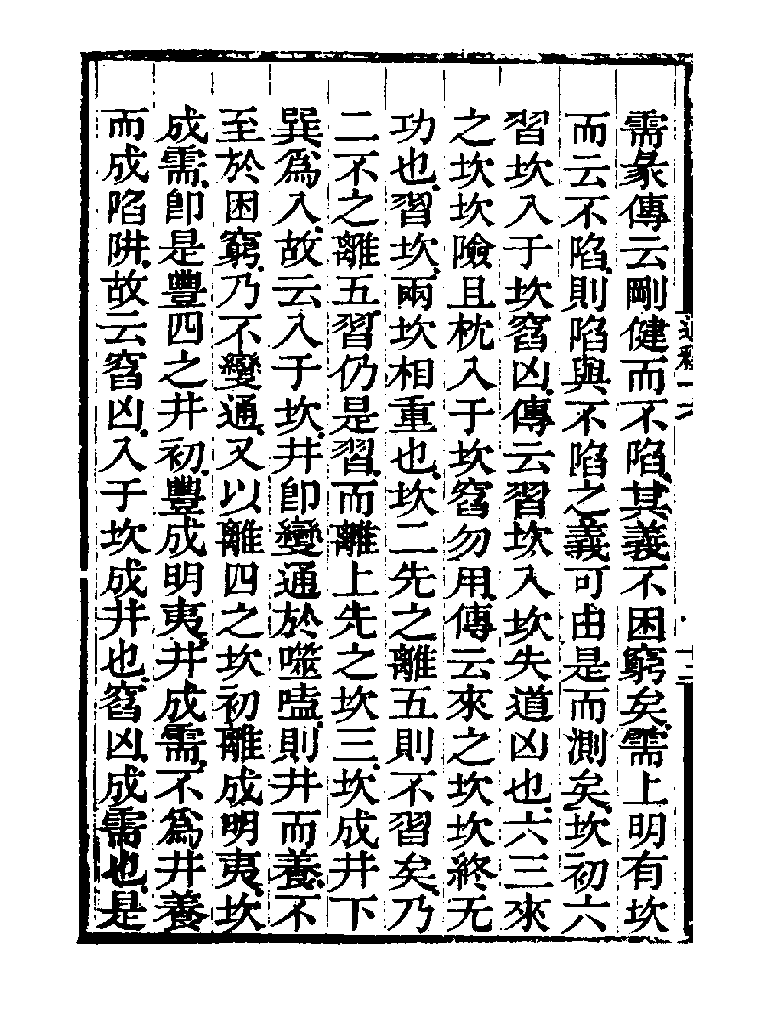 需彖傳云剛健而不陷其義不困窮矣需上明有坎
而云不陷則陷與不陷之義可由是而測矣坎初六
習坎入于坎窞凶傳云習坎入坎失道凶也六三來
之坎坎險且枕入于坎窞勿用傳云來之坎坎終无
功也習坎兩坎相重也坎二先之離五則不習矣乃
二不之離五習仍是習而離上先之坎三坎成井下
巽爲入故云入于坎井卽變通於噬嗑則井而養不
至於困窮乃不變通又以離四之坎初離成明夷坎
成需卽是豐四之井初豐成明夷井成需不爲井養
而成陷阱故云窞凶入于坎成井也窞凶成需也是